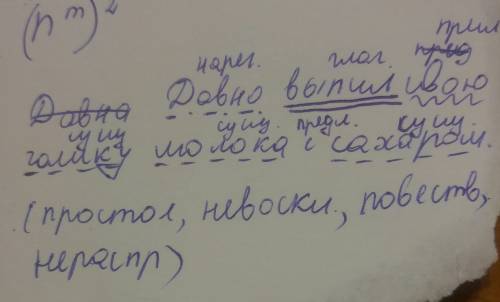 (n^m)^2
нареч. глаг. прил
Давно Давно выпил твою
сущ сущ. предл. сущ.
молока с сахаром.
(простол, невоскл., повеств,
нераспр)